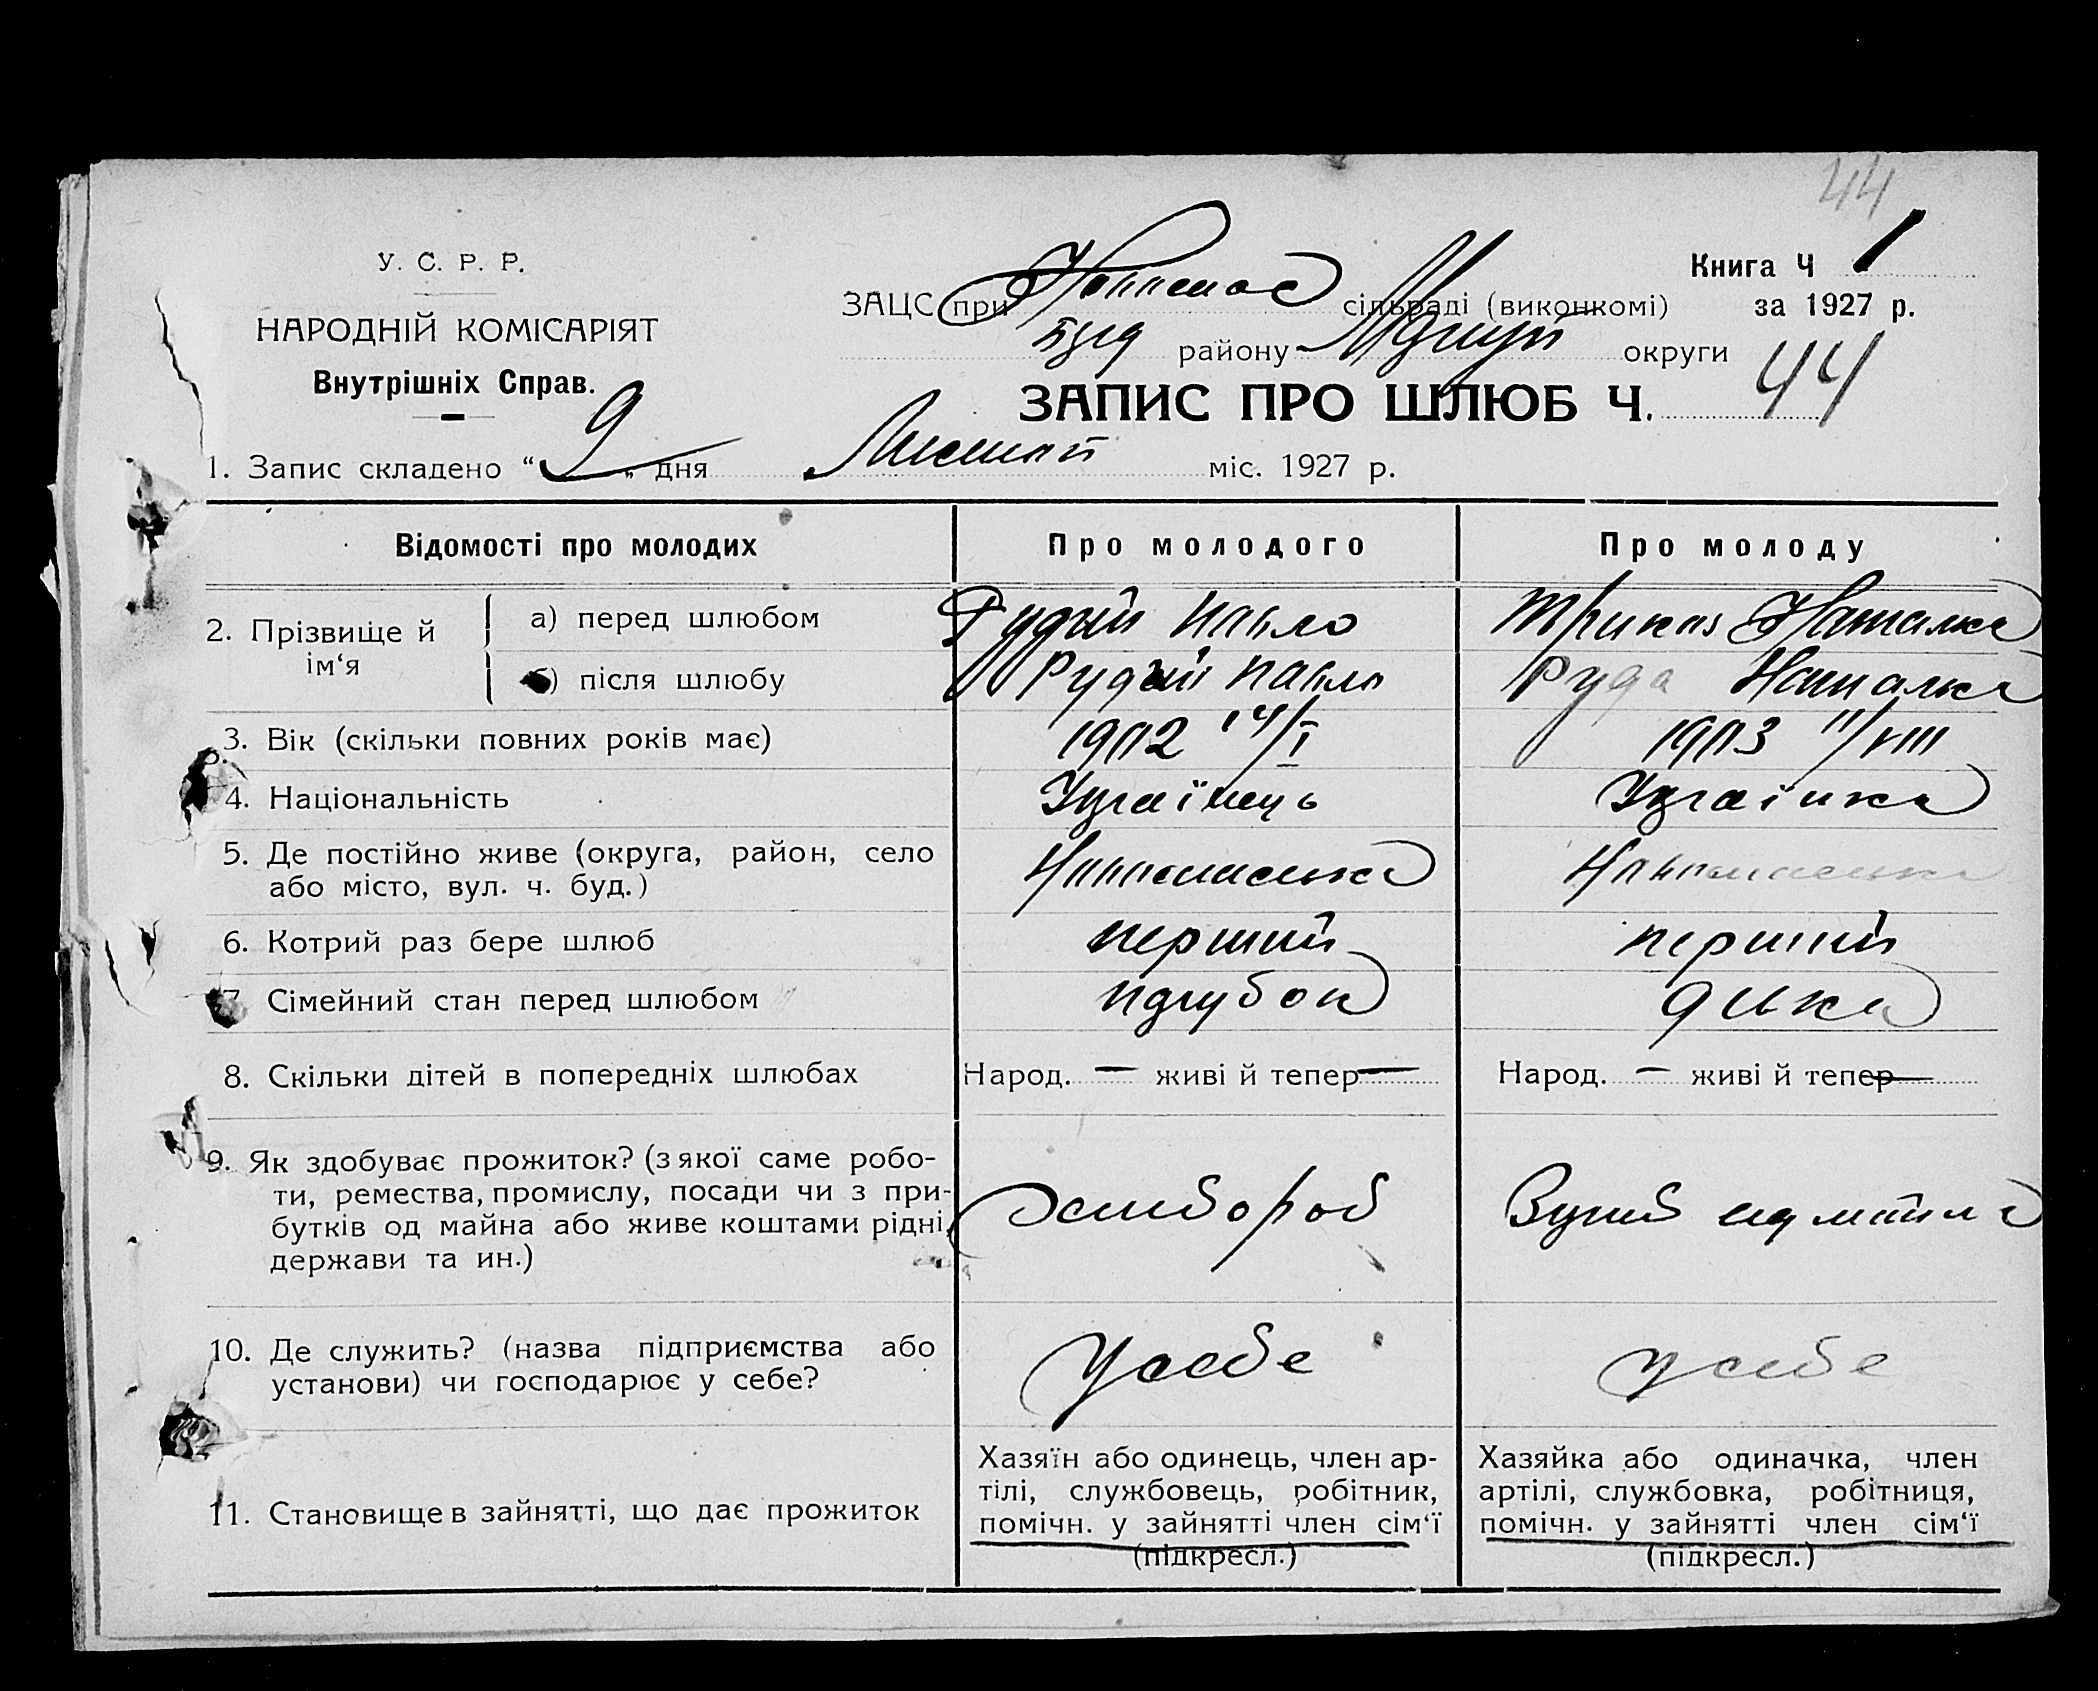 44
У. С. Р. Р.
НАРОДНІЙ КОМІСАРІЯТ
Внутрішніх Справ.
Книга Ч 1
за 1927 р.
ЗАЦС при сільраді (виконкомі)
району округи
ЗАПИС ПРО ШЛЮБ Ч. 44
1. Запис складено “ 9 „ дня Листоп міс. 1927 р.
Відомості про молодих
Про молодого
Про молоду
2. Прізвище й ім‘я
а) перед шлюбом
Рудий Павло
Наталка
б) після шлюбу
Рудий Павло
Руда Наталка
3. Вік (скільки повних років має)
1902 14/I
1903 11/VIII
4. Національність
Українець
Українка
5. Де постійно живе (округа, район, село
або місто, вул. ч. буд.)
6. Котрий раз бере шлюб
перший
перший
7. Сімейний стан перед шлюбом
парубок
дівка
8. Скільки дітей в попередніх шлюбах
Народ. — живі й тепер —
Народ. — живі й тепер —
9. Як здобуває прожиток? (з якої саме робо-
ти, ремества, промислу, посади чи з при-
бутків од майна або живе коштами рідні,
держави та ин.)
хлибороб
10. Де служить? (назва підприємства або
установи) чи господарює у себе?
у себе
у себе
11. Становище в зайнятті, що дає прожиток
Хазяїн або одинець, член ар-
тілі, службовець, робітник,
помічн. у зайнятті член сім‘ї
(підкресл.)
Хазяйка або одиначка, член
артілі, службовка, робітниця,
помічн. у зайнятті член сім‘ї
(підкресл.)